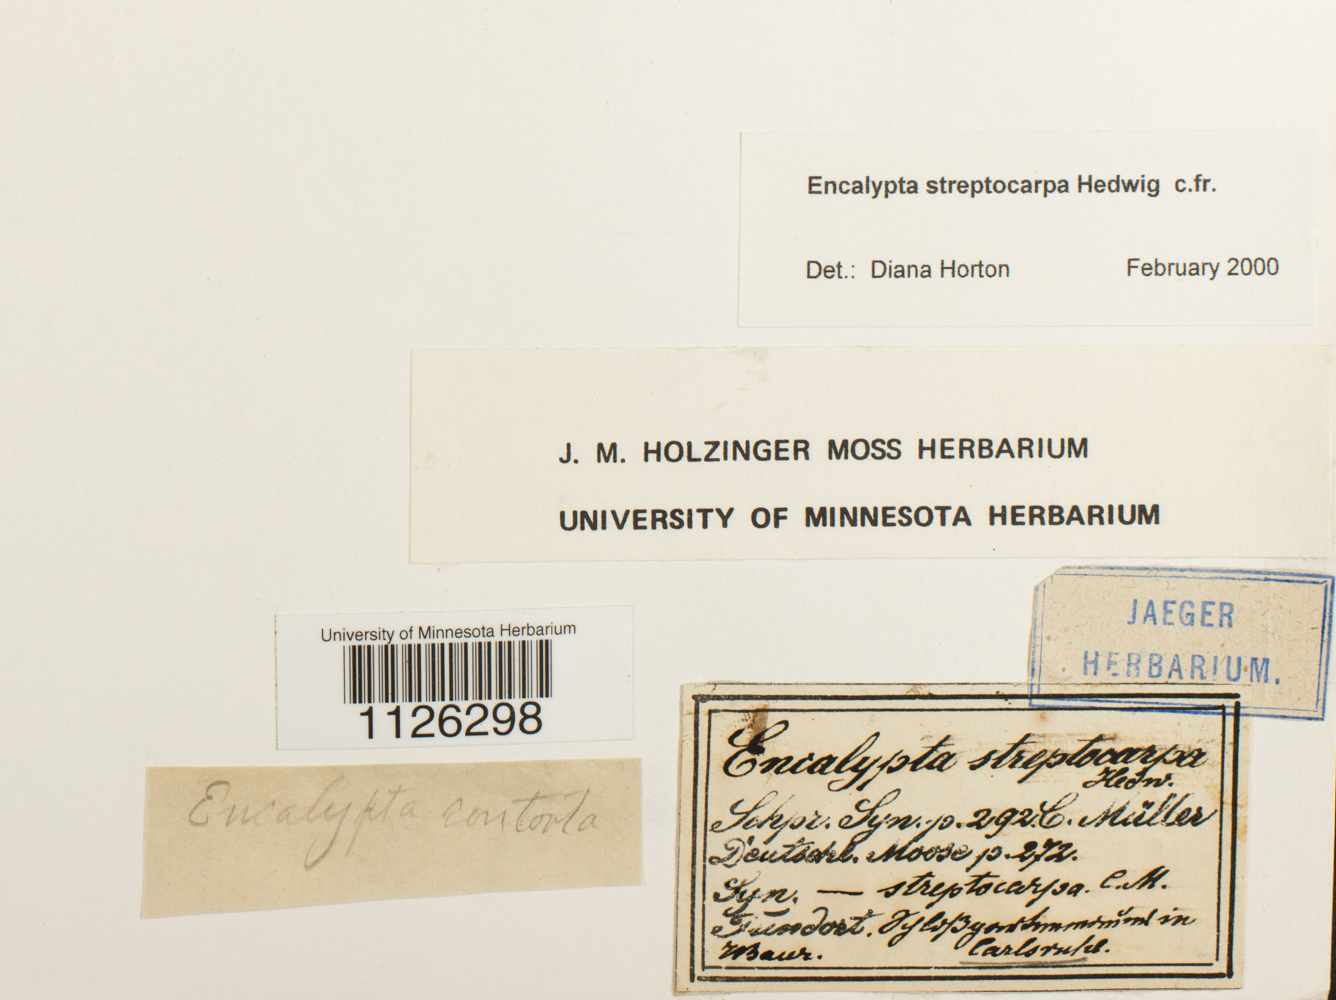 Encalypta streptocarpa Hedwig c.fr.
Det.: Diana Horton February 2000
J. M. HOLZINGER MOSS HERBARIUM
UNIVERSITY OF MINNESOTA HERBARIUM
JAEGER
HERBARIUM.
University of Minnesota Herbarium
1126298
Encalypta contorta
Encalypta streptocarpa
Hedw.
Schpr. Syn. p. 292. C. Müller
Deutschl. Moose p. 272.
Syn. — streptocarpa. C. M.
Fundort. in
Baur. Carlsruhe.